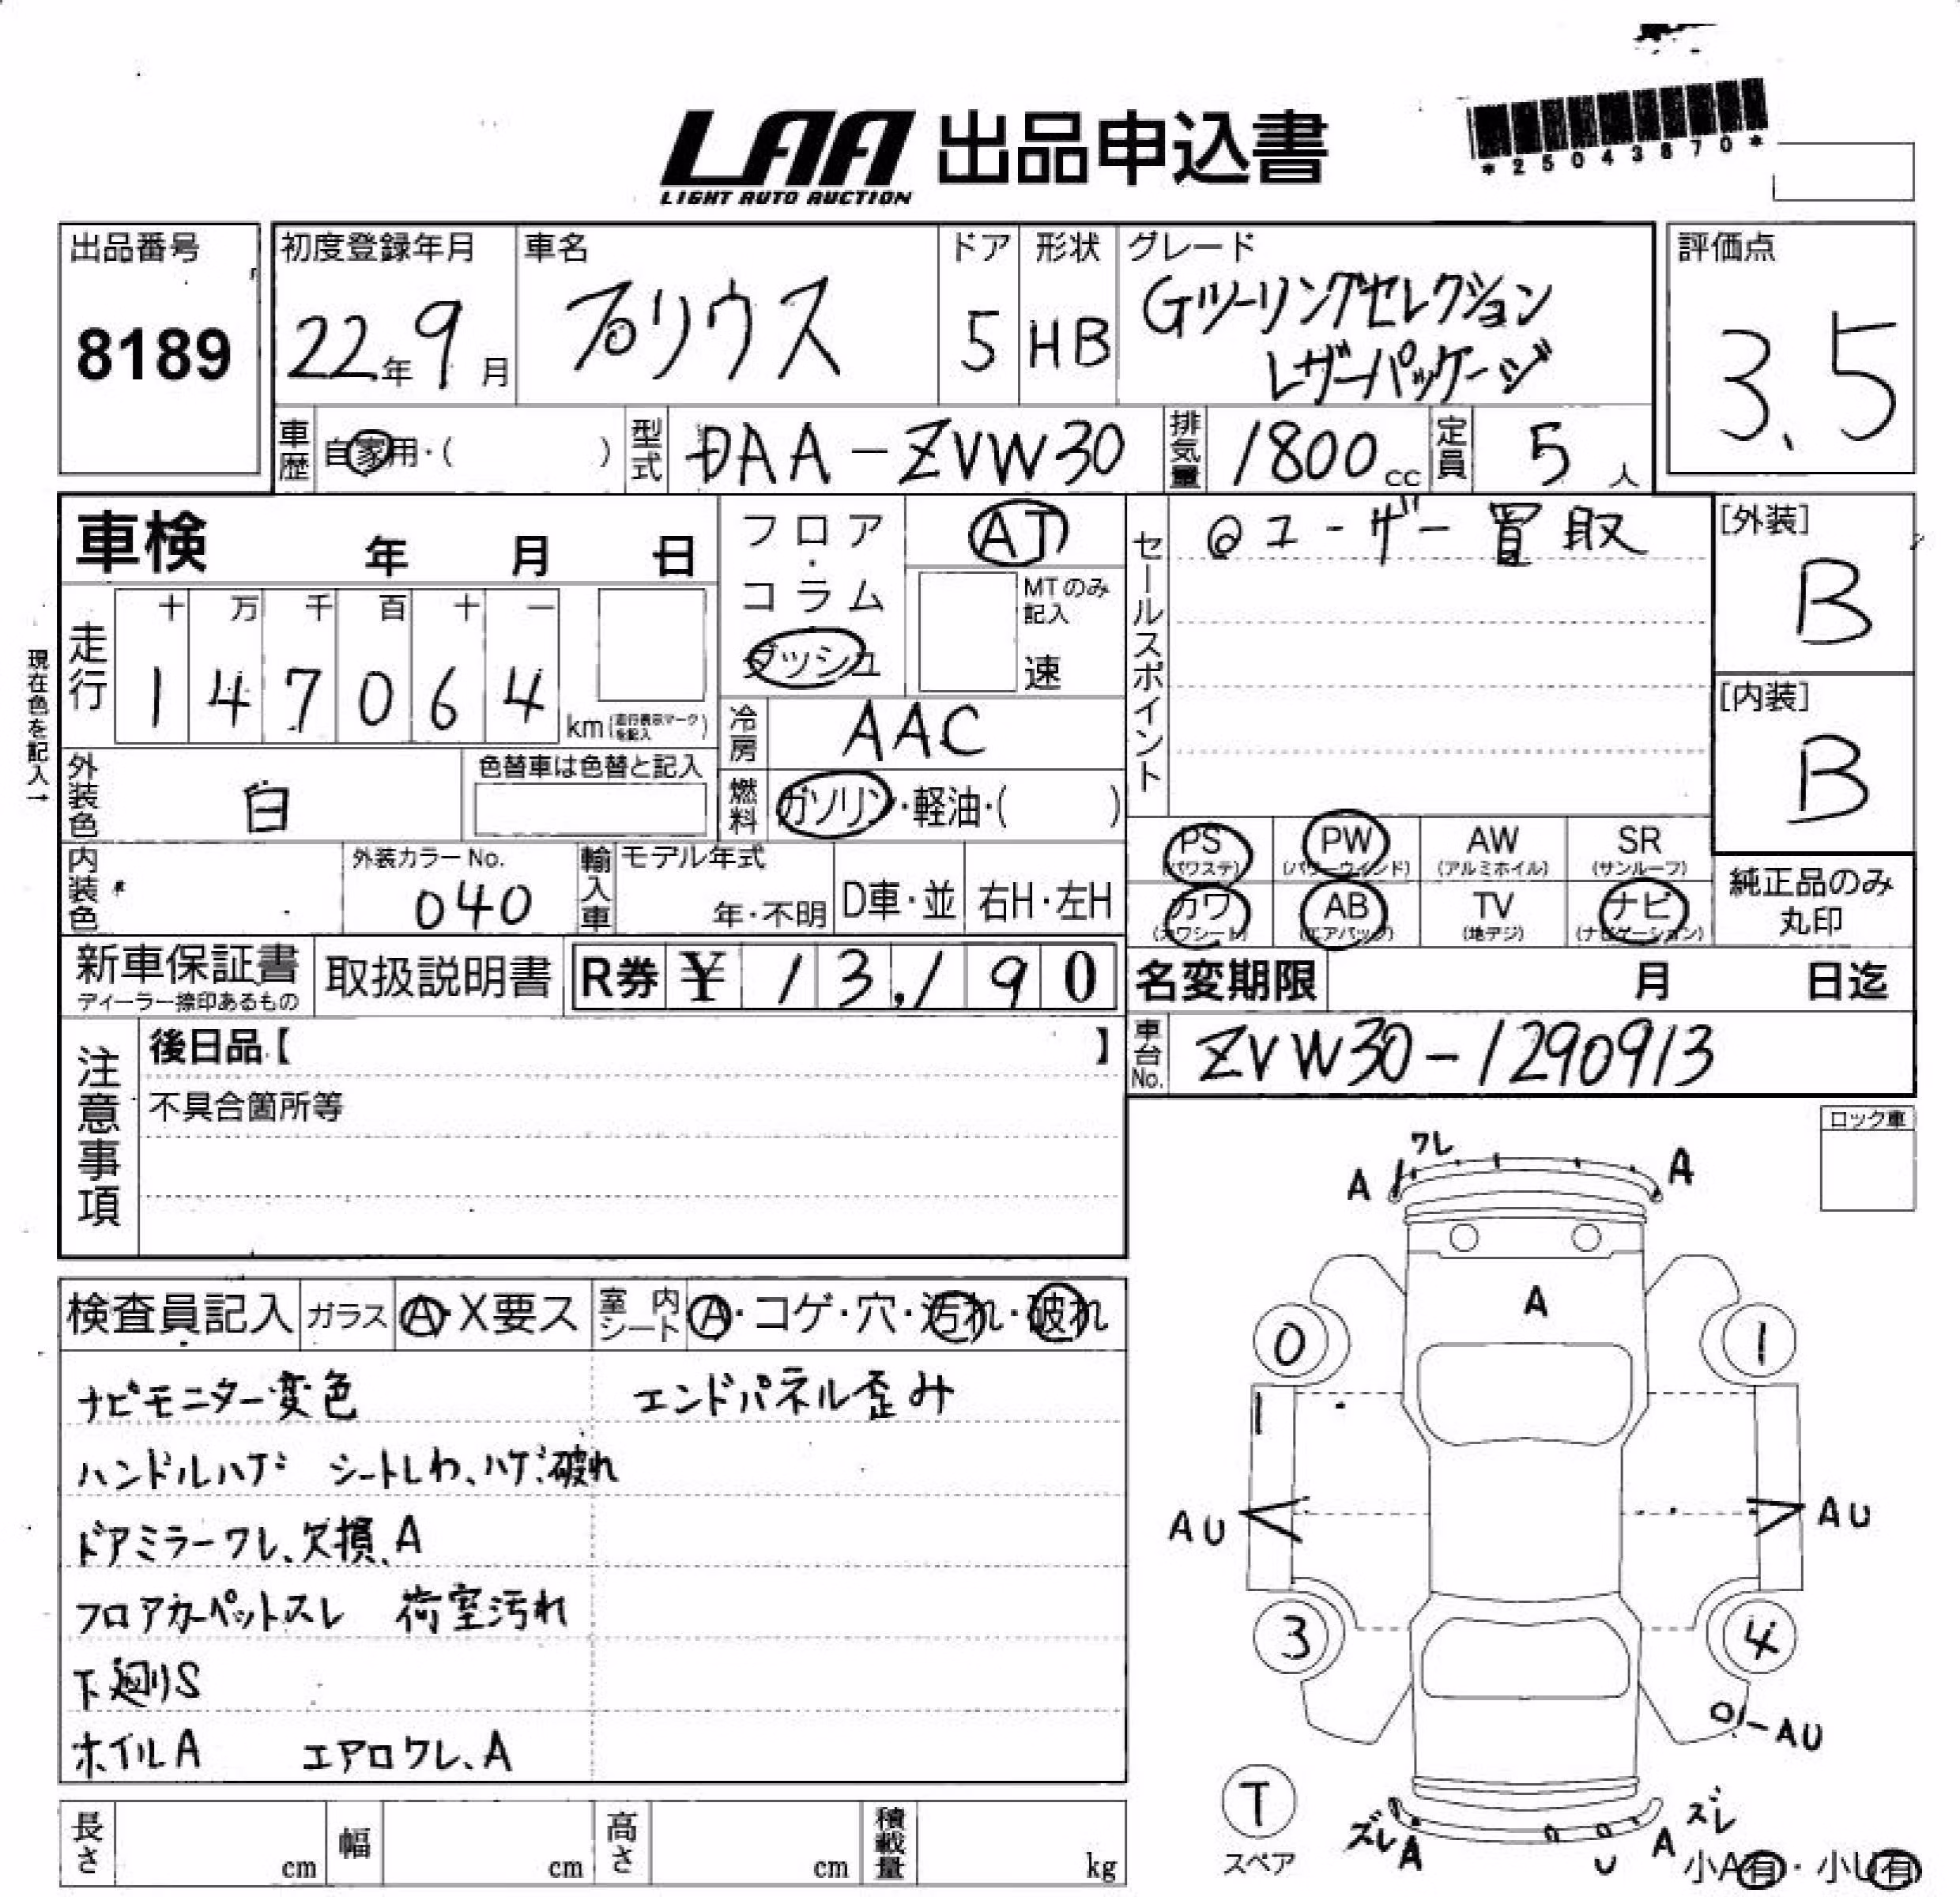 LAA 出品申込書
LIGHT AUTO AUCTION
*25043870*
出品番号
8189
初度登録年月
22年9月
車名
プリウス
ドア
5
形状
HB
グレード
Gツーリングセレクション
レザーパッケージ
評価点
3.5
車歴
自家用・( )
型式
DAA-ZVW30
排気量
1800cc
定員
5人
車検 年 月 日
フロア・コラム
ダッシュ
AT
MTのみ記入
速
セールスポイント
◎ユーザー買取
[外装]
B
[内装]
B
現在色を記入→
走行
十 万 千 百 十 一
1 4 7 0 6 4
km(走行表示マークを記入)
冷房
AAC
外装色
白
色替車は色替と記入
燃料
ガソリン・軽油・( )
内装色
外装カラーNo.
040
輸入車
モデル年式
年・不明
D車・並
右H・左H
PS
(パワステ)
PW
(パワーウィンド)
AW
(アルミホイル)
SR
(サンルーフ)
カワ
(カワシート)
AB
(エアバッグ)
TV
(地デジ)
ナビ
(ナビゲーション)
純正品のみ
丸印
新車保証書
ディーラー捺印あるもの
取扱説明書
R券 ¥ 13,190
名変期限 月 日迄
注意事項
後日品【 】
不具合箇所等
車台No.
ZVW30-1290913
ロック車
検査員記入
ガラス
A・X要ス
室内シート
A・コゲ・穴・汚れ・破れ
ナビモニター変色 エンドパネル歪み
ハンドルハゲ シートしわ、ハゲ、破れ
ドアミラーワレ、欠損、A
フロアカーペットスレ 荷室汚れ
下廻りS
ホイルA エアロワレ、A
ワレ
A A
A
0 1
AU AU
3 4
AU
T
スペア
ズレ A U A ズレ
小A有・小U有
長さ cm
幅 cm
高さ cm
積載量 kg